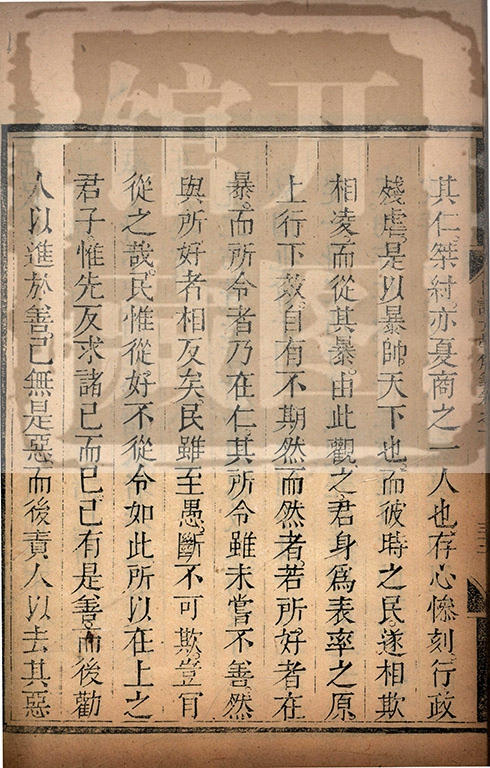 其仁桀紂亦夏商之一人也存心慘刻行政
殘虐是以暴帥天下也而彼時之民遂相欺
相凌而從其暴由此觀之君身為表率之原
上行下效自有不期然而然者若所好者在
暴而所令者乃在仁其所令雖未嘗不善然
與所好者相反矣民雖至愚斷不可欺豈肎
從之哉民惟從好不從令如此所以在上之
君子惟先反求諸己而已己有是善而後勸
人以進於善己無是惡而後責人以去其惡